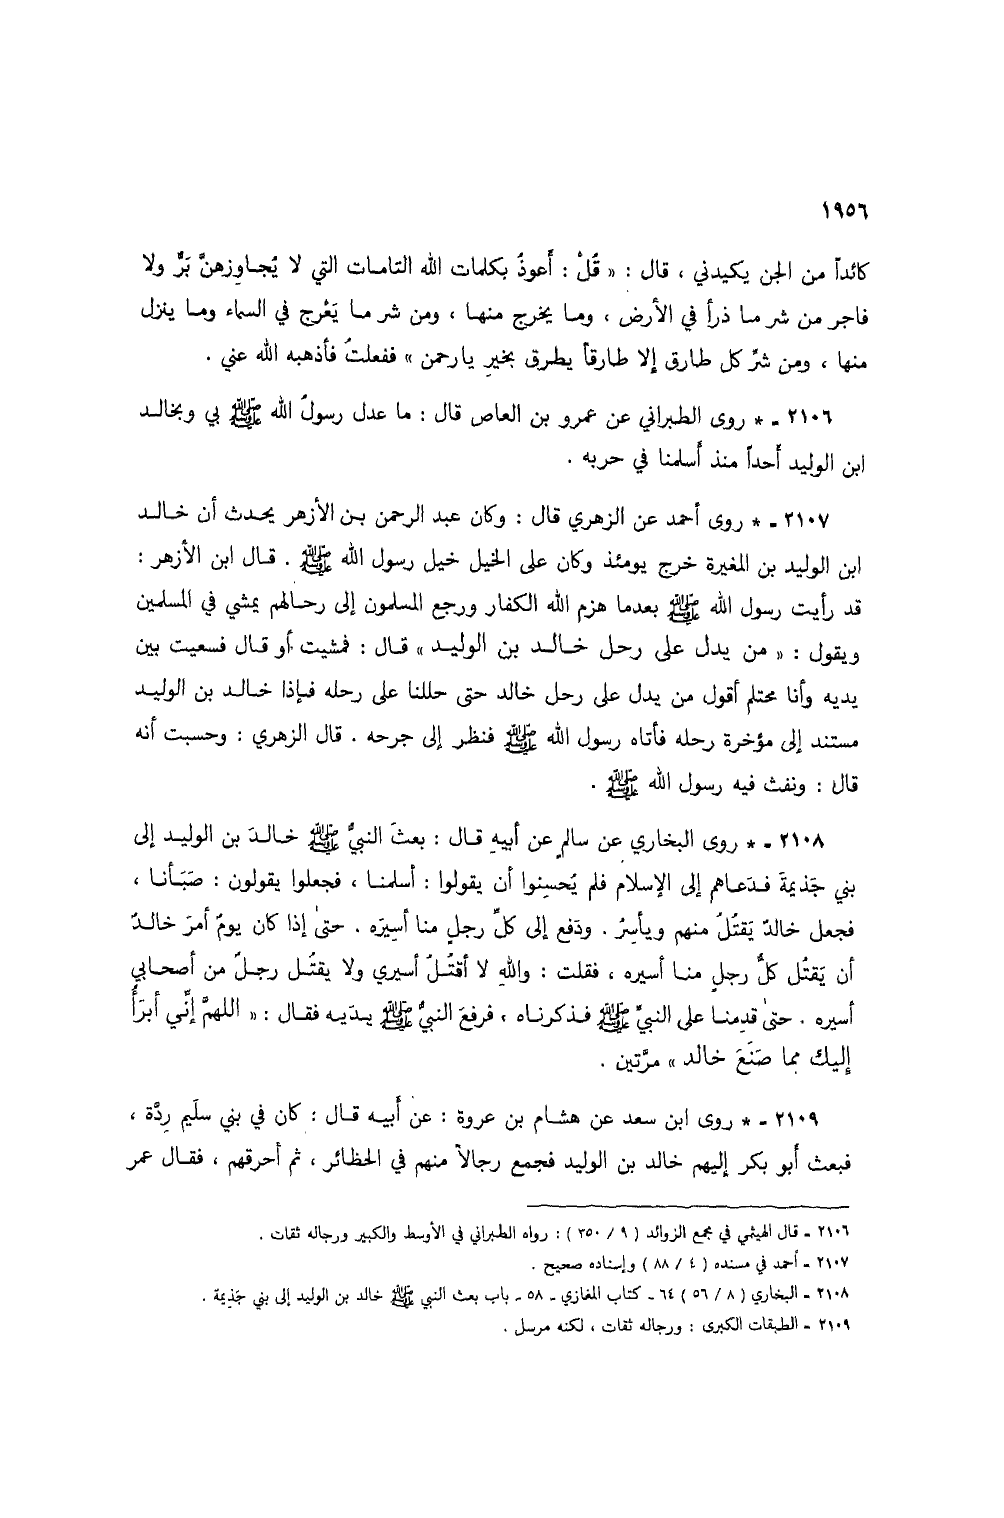 ١٩٥٦
كائداً من الجن يكيدني ، قال : « قُلْ : أَعوذُ بكلمات الله التامات التي لا يُجاوِزهنَّ بَرٌّ ولا
فاجر من شر ما ذرأ في الأرض ، وما يخرج منها ، ومن شر ما يَعْرج في السماء وما ينزل
منها ، ومن شرِّ كل طارق إلا طارقاً يطرق بخيرٍ يارحمن » ففعلتُ فأذهبه الله عني .
٢١٠٦ - * روى الطبراني عن عمرو بن العاص قال : ما عدل رسولُ الله ﷺ بي وبخالد
ابن الوليد أَحداً منذ أَسلمنا في حربه .
٢١٠٧ - * روى أحمد عن الزهري قال : وكان عبد الرحمن بن الأزهر يحدث أن خالد
ابن الوليد بن المغيرة خرج يومئذ وكان على الخيل خيل رسول الله ﷺ . قال ابن الأزهر :
قد رأيت رسول الله ﷺ بعدما هزم الله الكفار ورجع المسلمون إلى رحالهم يمشي في المسلمين
ويقول : « من يدل على رحل خالد بن الوليد » قال : فمشيت أو قال فسعيت بين
يديه وأنا محتلم أقول من يدل على رحل خالد حتى حللنا على رحله فإذا خالد بن الوليد
مستند إلى مؤخرة رحله فأتاه رسول الله ﷺ فنظر إلى جرحه . قال الزهري : وحسبت أنه
قال : ونفث فيه رسول الله ﷺ .
٢١٠٨ - * روى البخاري عن سالمٍ عن أبيهِ قال : بعثَ النبيُّ ﷺ خالدَ بن الوليد إلى
بني جَذيمةَ فدَعاهم إلى الإسلام فلم يُحسِنوا أن يقولوا : أسلمنا ، فجعلوا يقولون : صَبَأنا ،
فجعل خالدٌ يَقتُلُ منهم ويأسِرُ . ودَفع إلى كلِّ رجلٍ منا أسيرَه . حتىٰ إذا كان يومٌ أمرَ خالدٌ
أن يَقتُل كلُّ رجلٍ منا أسيره ، فقلت : واللهِ لا أقتُلُ أسيري ولا يقتُل رجلٌ من أصحابي
أسيره . حتىٰ قدِمنا على النبيِّ ﷺ فذكرناه ، فرفعَ النبيُّ ﷺ يدَيه فقال : « اللهمَّ إنِّي أبرَأُ
إليك مما صَنَعَ خالد » مرَّتين .
٢١٠٩ - * روى ابن سعد عن هشام بن عروة : عن أَبيه قال : كان في بني سلَيم رِدَّة ،
فبعث أَبو بكر إليهم خالد بن الوليد فجمع رجالاً منهم في الحظائر ، ثم أحرقهم ، فقال عمر
٢١٠٦ - قال الهيثمي في مجمع الزوائد ( ٩ / ٣٥٠ ) : رواه الطبراني في الأوسط والكبير ورجاله ثقات .
٢١٠٧ - أحمد في مسنده ( ٤ / ٨٨ ) وإسناده صحيح .
٢١٠٨ - البخاري ( ٨ / ٥٦ ) ٦٤ - كتاب المغازي - ٥٨ - باب بعث النبي ﷺ خالد بن الوليد إلى بني جَذيمة .
٢١٠٩ - الطبقات الكبرى : ورجاله ثقات ، لكنه مرسل .